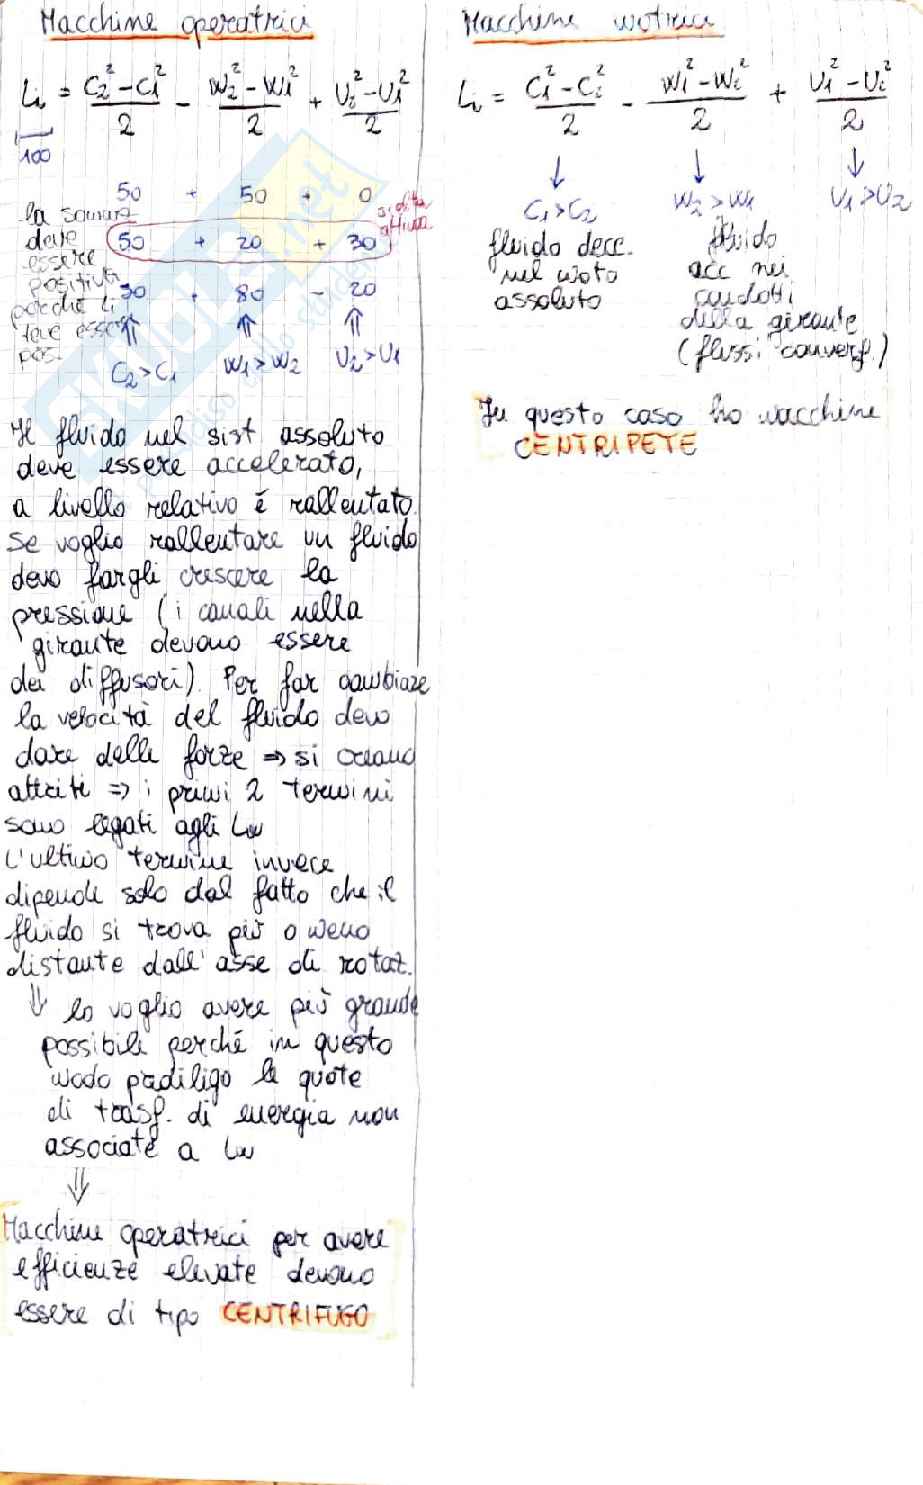 Macchine operatrici
Li = C2² - C1² / 2 - W2² - W1² / 2 + U2² - U1² / 2
100
50 + 50 + 0
la somma
deve
50 + 20 + 30
si sfrutta
essere
positiva
30 + 80 - 20
perché Li
deve essere
pos.
C2 > C1 W1 > W2 U2 > U1
Il fluido nel sist assoluto
deve essere accelerato,
a livello relativo è rallentato.
Se voglio rallentare un fluido
devo fargli crescere la
pressione (i canali nella
girante devono essere
dei diffusori). Per far cambiare
la velocità del fluido devo
dare delle forze ⇒ si creano
attriti ⇒ i primi 2 termini
sono legati agli Lw
L'ultimo termine invece
dipende solo dal fatto che il
fluido si trova più o meno
distante dall'asse di rotaz.
⇓ lo voglio avere più grande
possibile perché in questo
modo prediligo le quote
di trasf. di energia non
associate a Lw
⇓
Macchine operatrici per avere
efficienze elevate devono
essere di tipo CENTRIFUGO
Macchine motrici
Li = C1² - C2² / 2 - W1² - W2² / 2 + U1² - U2² / 2
↓ ↓ ↓
C1 > C2 W2 > W1 U1 > U2
fluido dece. fluido
nel moto acc nei
assoluto condotti
della girante
(flussi converg.)
In questo caso ho macchine
CENTRIPETE
SKUOLA.net